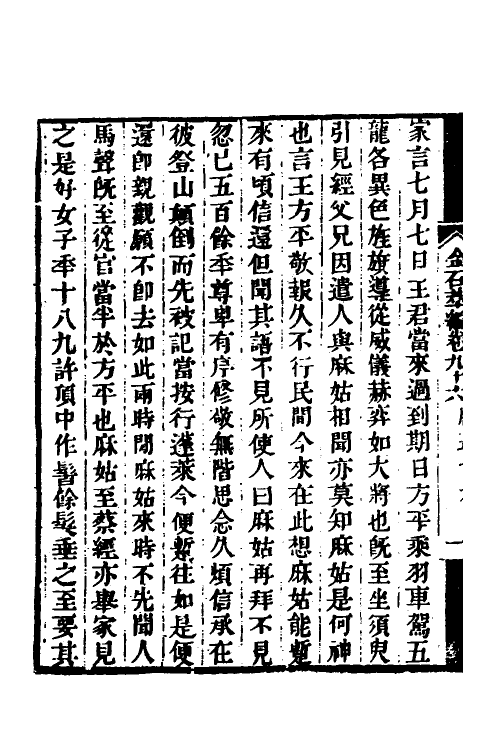 金石萃編卷九十六
家言七月七日王君當來過到期日方平乘羽車駕五
龍各異色旌旗導從威儀赫弈如大將也旣至坐須臾
引見經父兄因遣人與麻姑相聞亦莫知麻姑是何神
也言王方平敬報久不行民間今來在此想麻姑能蹔
來有頃信還但聞其語不見所使人曰麻姑再拜不見
忽已五百餘年尊卑有序修敬無階思念久煩信承在
彼登山顛倒而先被記當按行蓬萊今便蹔往如是便
還卽親觀願不卽去如此兩時間麻姑來時不先聞人
馬聲旣至從官當半於方平也麻姑至蔡經亦舉家見
之是好女子年十八九許頂中作髻餘髮垂之至要其